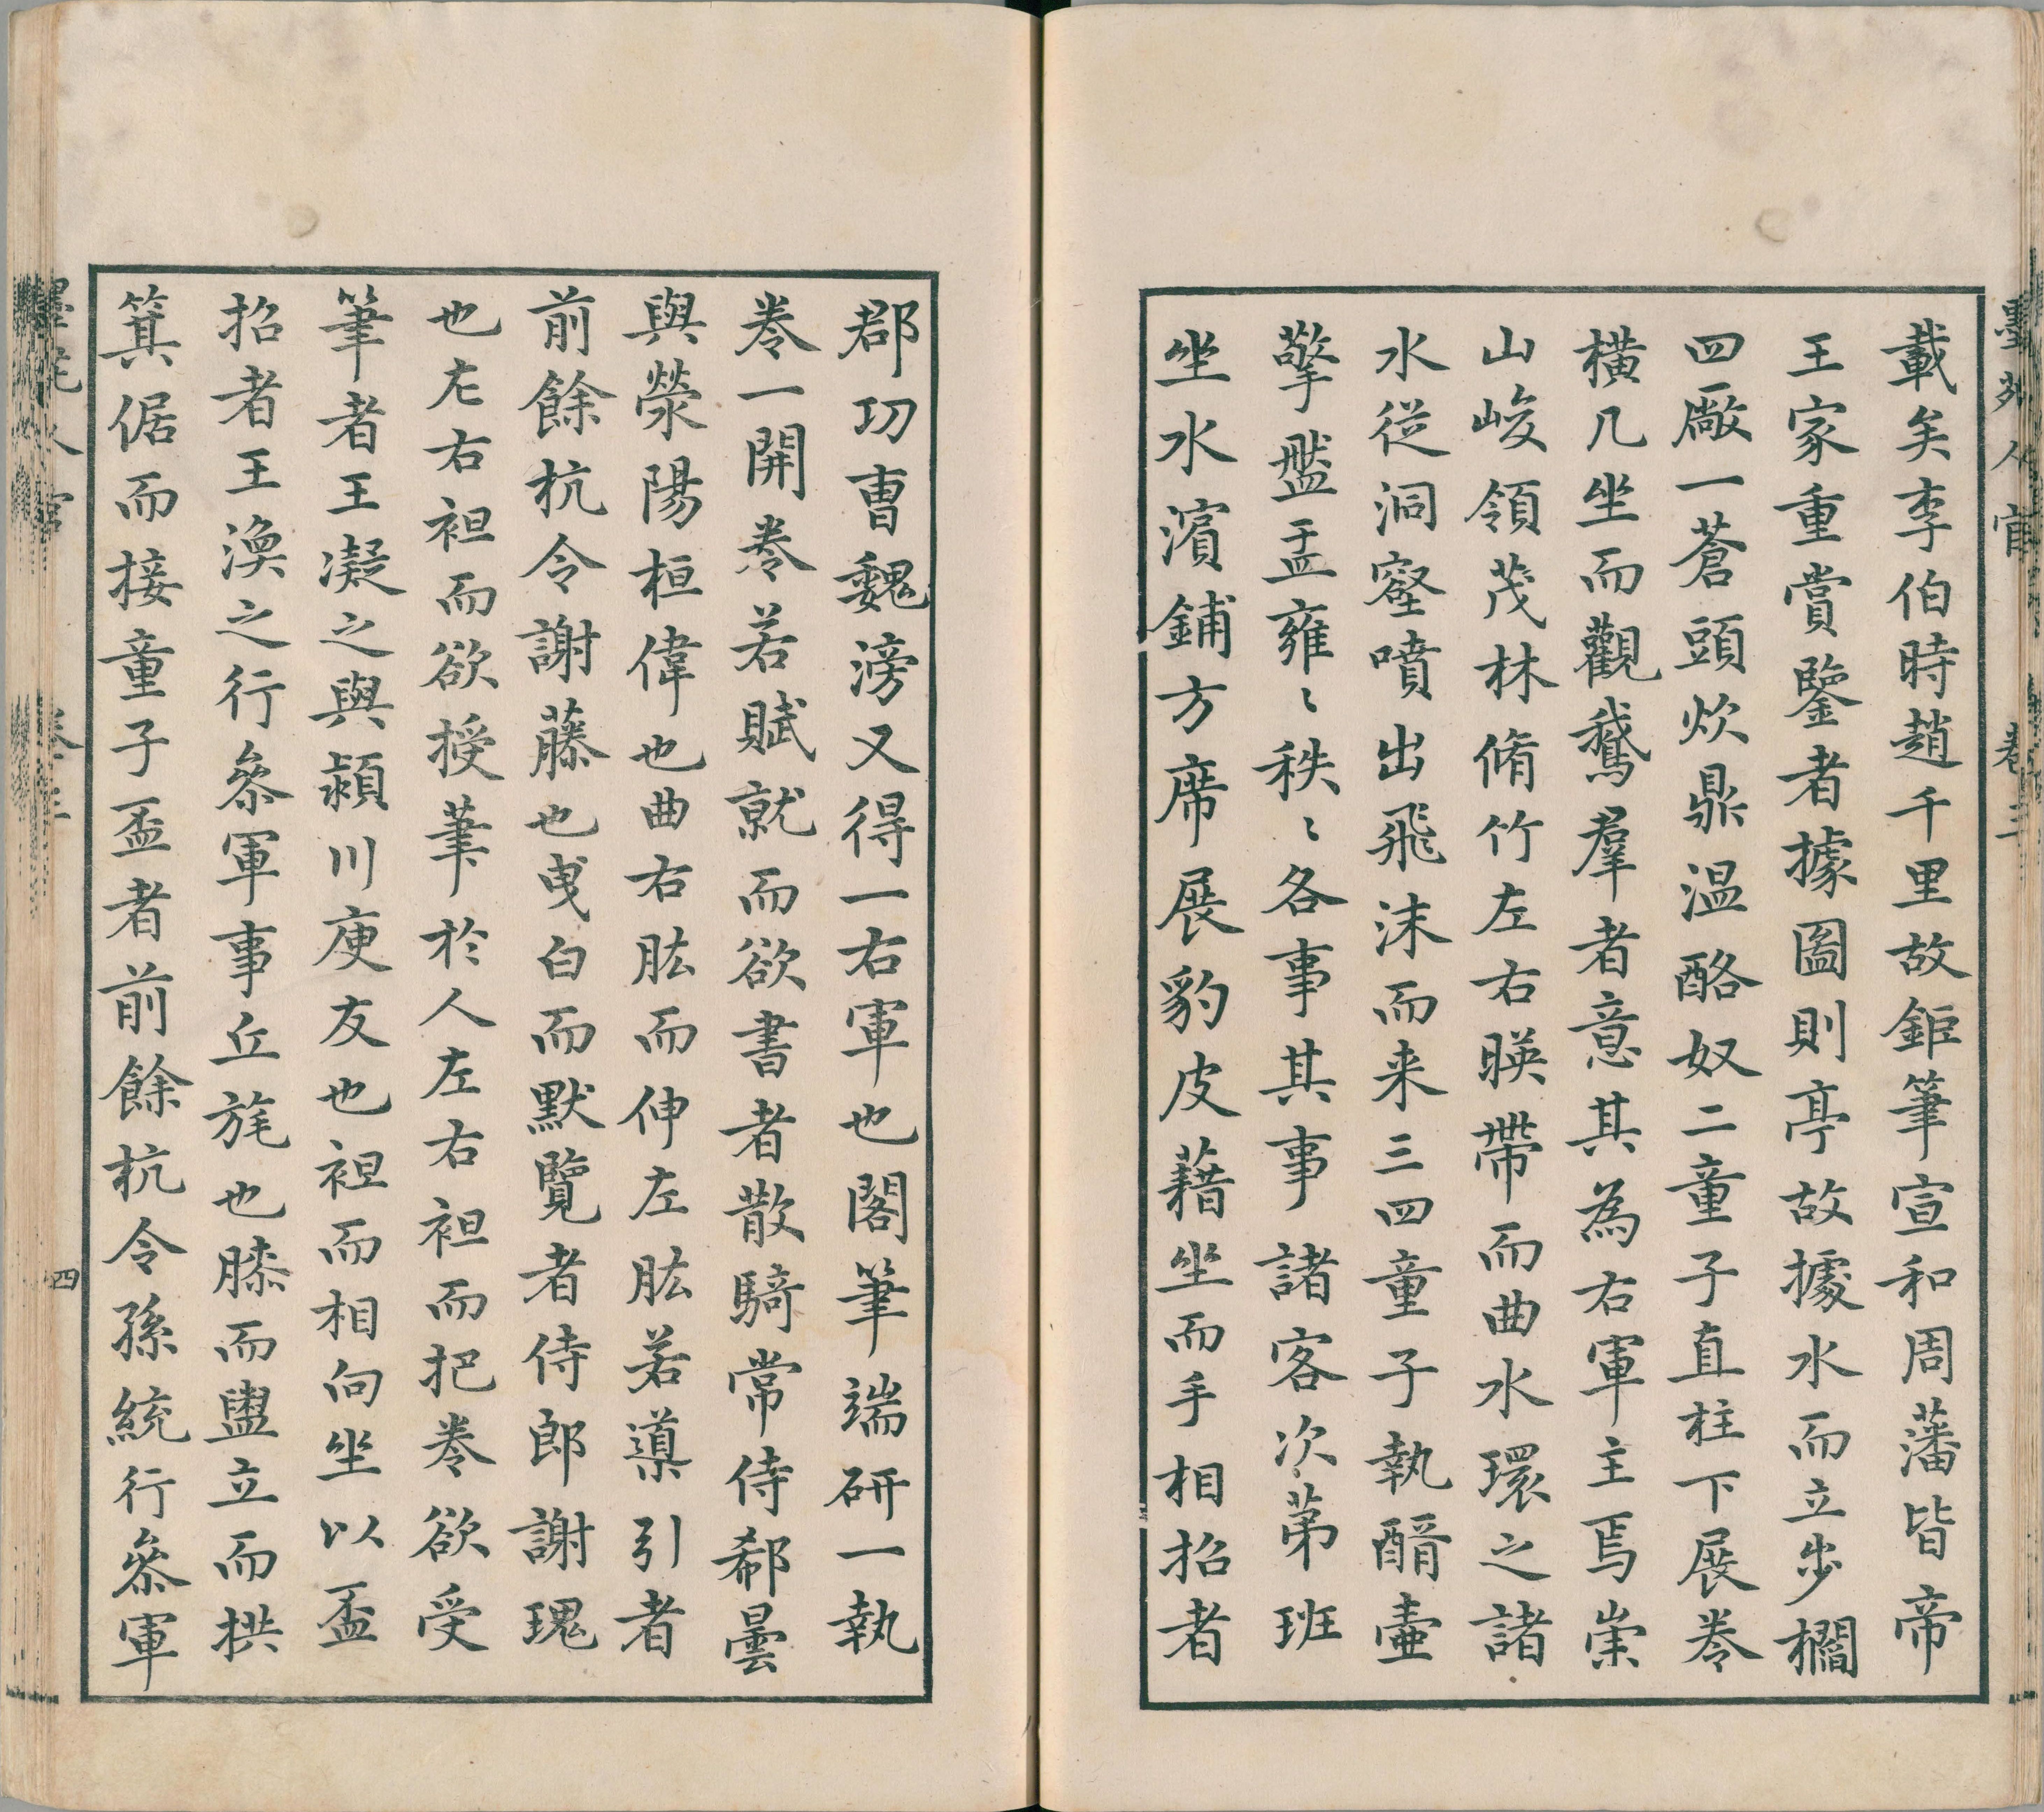 載矣李伯時趙千里故鉅筆宣和周藩皆帝
王家重賞鑒者據圖則亭故據水而立步櫩
四廠一蒼頭炊鼎溫酪奴二童子直柱下展卷
橫几坐而觀鵞羣者意其為右軍主焉崇
山峻領茂林脩竹左右暎帶而曲水環之諸
水從洞壑噴出飛沫而来三四童子執醑壷
擎盤盂雍〻秩〻各事其事諸客次苐班
坐水濱鋪方席展豹皮藉坐而手相招者
郡功曺魏滂又得一右軍也閣筆端研一執
卷一開卷若賦就而欲書者散騎常侍郗曇
與滎陽桓偉也曲右肱而伸左肱若導引者
前餘杭令謝藤也曵白而默覽者侍郎謝瑰
也左右袒而欲授筆於人左右袒而把卷欲受
筆者王凝之與潁川庾友也袒而相向坐以盃
招者王渙之行叅軍事丘旄也膝而盥立而拱
箕倨而接童子盃者前餘杭令孫統行叅軍
墨苑人官 卷三 四